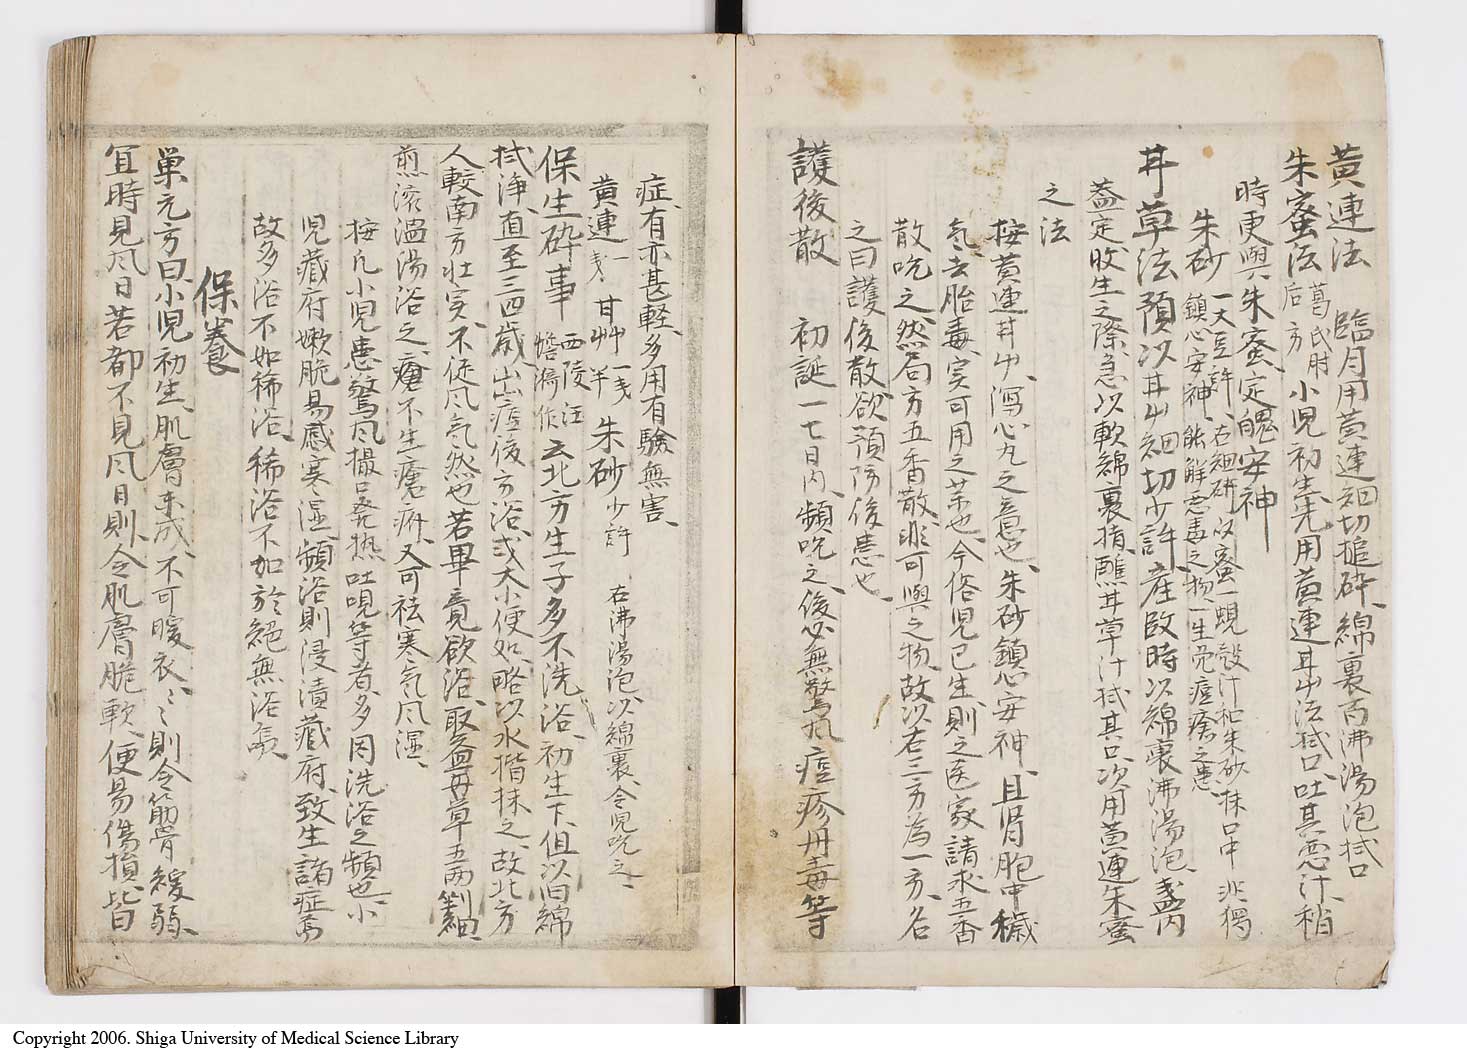 黄連法 臨月用黄連細切搥碎綿裏百沸湯泡拭口
朱蜜法 葛氏肘后方 小児初生先用黄連甘艸法拭口吐其悪汁稍
時更與朱蜜定魄安神
朱砂 一大豆許右細研以蜜一蜆殻汁和朱砂抹口中非獨鎮心安神能解悪毒之物一生免痘瘡之患
甘草法預以甘艸細切少許産臨時以綿裹沸湯泡盞内
盖定收生之際急以軟綿裹指蘸甘草汁拭其口次用黄連朱蜜
之法
按黄連甘艸瀉心丸之意也朱砂鎮心安神且有胞中穢
气去胎毒実可用之薬也今俗児已生則之医家請求五香
散吃之然局方五香散非可與之物故以右三方為一方名
之曰護後散欲預防後患也
護後散 初誕一七日内頻吃之後必無驚風痘疹丹毒等
症有亦甚軽多用有験無害
黄連一戔 甘艸一戔半 朱砂少許 右沸湯泡以綿裹令児吮之
保生碎事 西陵汪憺漪作 云北方生子多不洗浴初生下但以旧綿
拭浄直至三四歳出痘後方浴或大小便如略以水揩抹之故北方
人較南方壮実不徒风气然也若畢竟欲浴取益母草五两剉細
煎滚温湯浴之 不生瘡疥又可祛寒气风湿
按凡小児患驚风撮口発热吐哯等者多因洗浴之頻也小
児蔵府嫩脆易感寒湿頻浴則浸漬蔵府致生諸症焉
故多浴不如稀浴稀浴不如於絶無浴焉
保養
巣元方曰小児初生肌膚未成不可暖衣〻〻則令筋骨緩弱
宜時見风日若都不見风日則令肌膚脆軟便易傷損皆
Copyright 2006. Shiga University of Medical Science Library